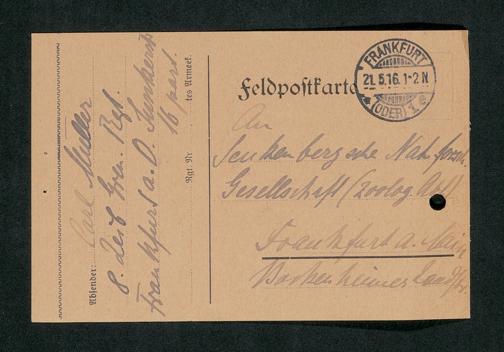 Feldpostkarte
FRANKFURT
21.5.16.1-2N
(ODER) 1 e
An
Senkenbergsche Nat. forsch.
Gesellschaft (Zoolog. Abt)
Frankfurt a. Main
Bockenheimer Landstr.
Absender: Carl Müller
8. Leib Gren. Rgt.
Frankfurt a. O.
16 part.
Rgt. Nr
tes Armeek.